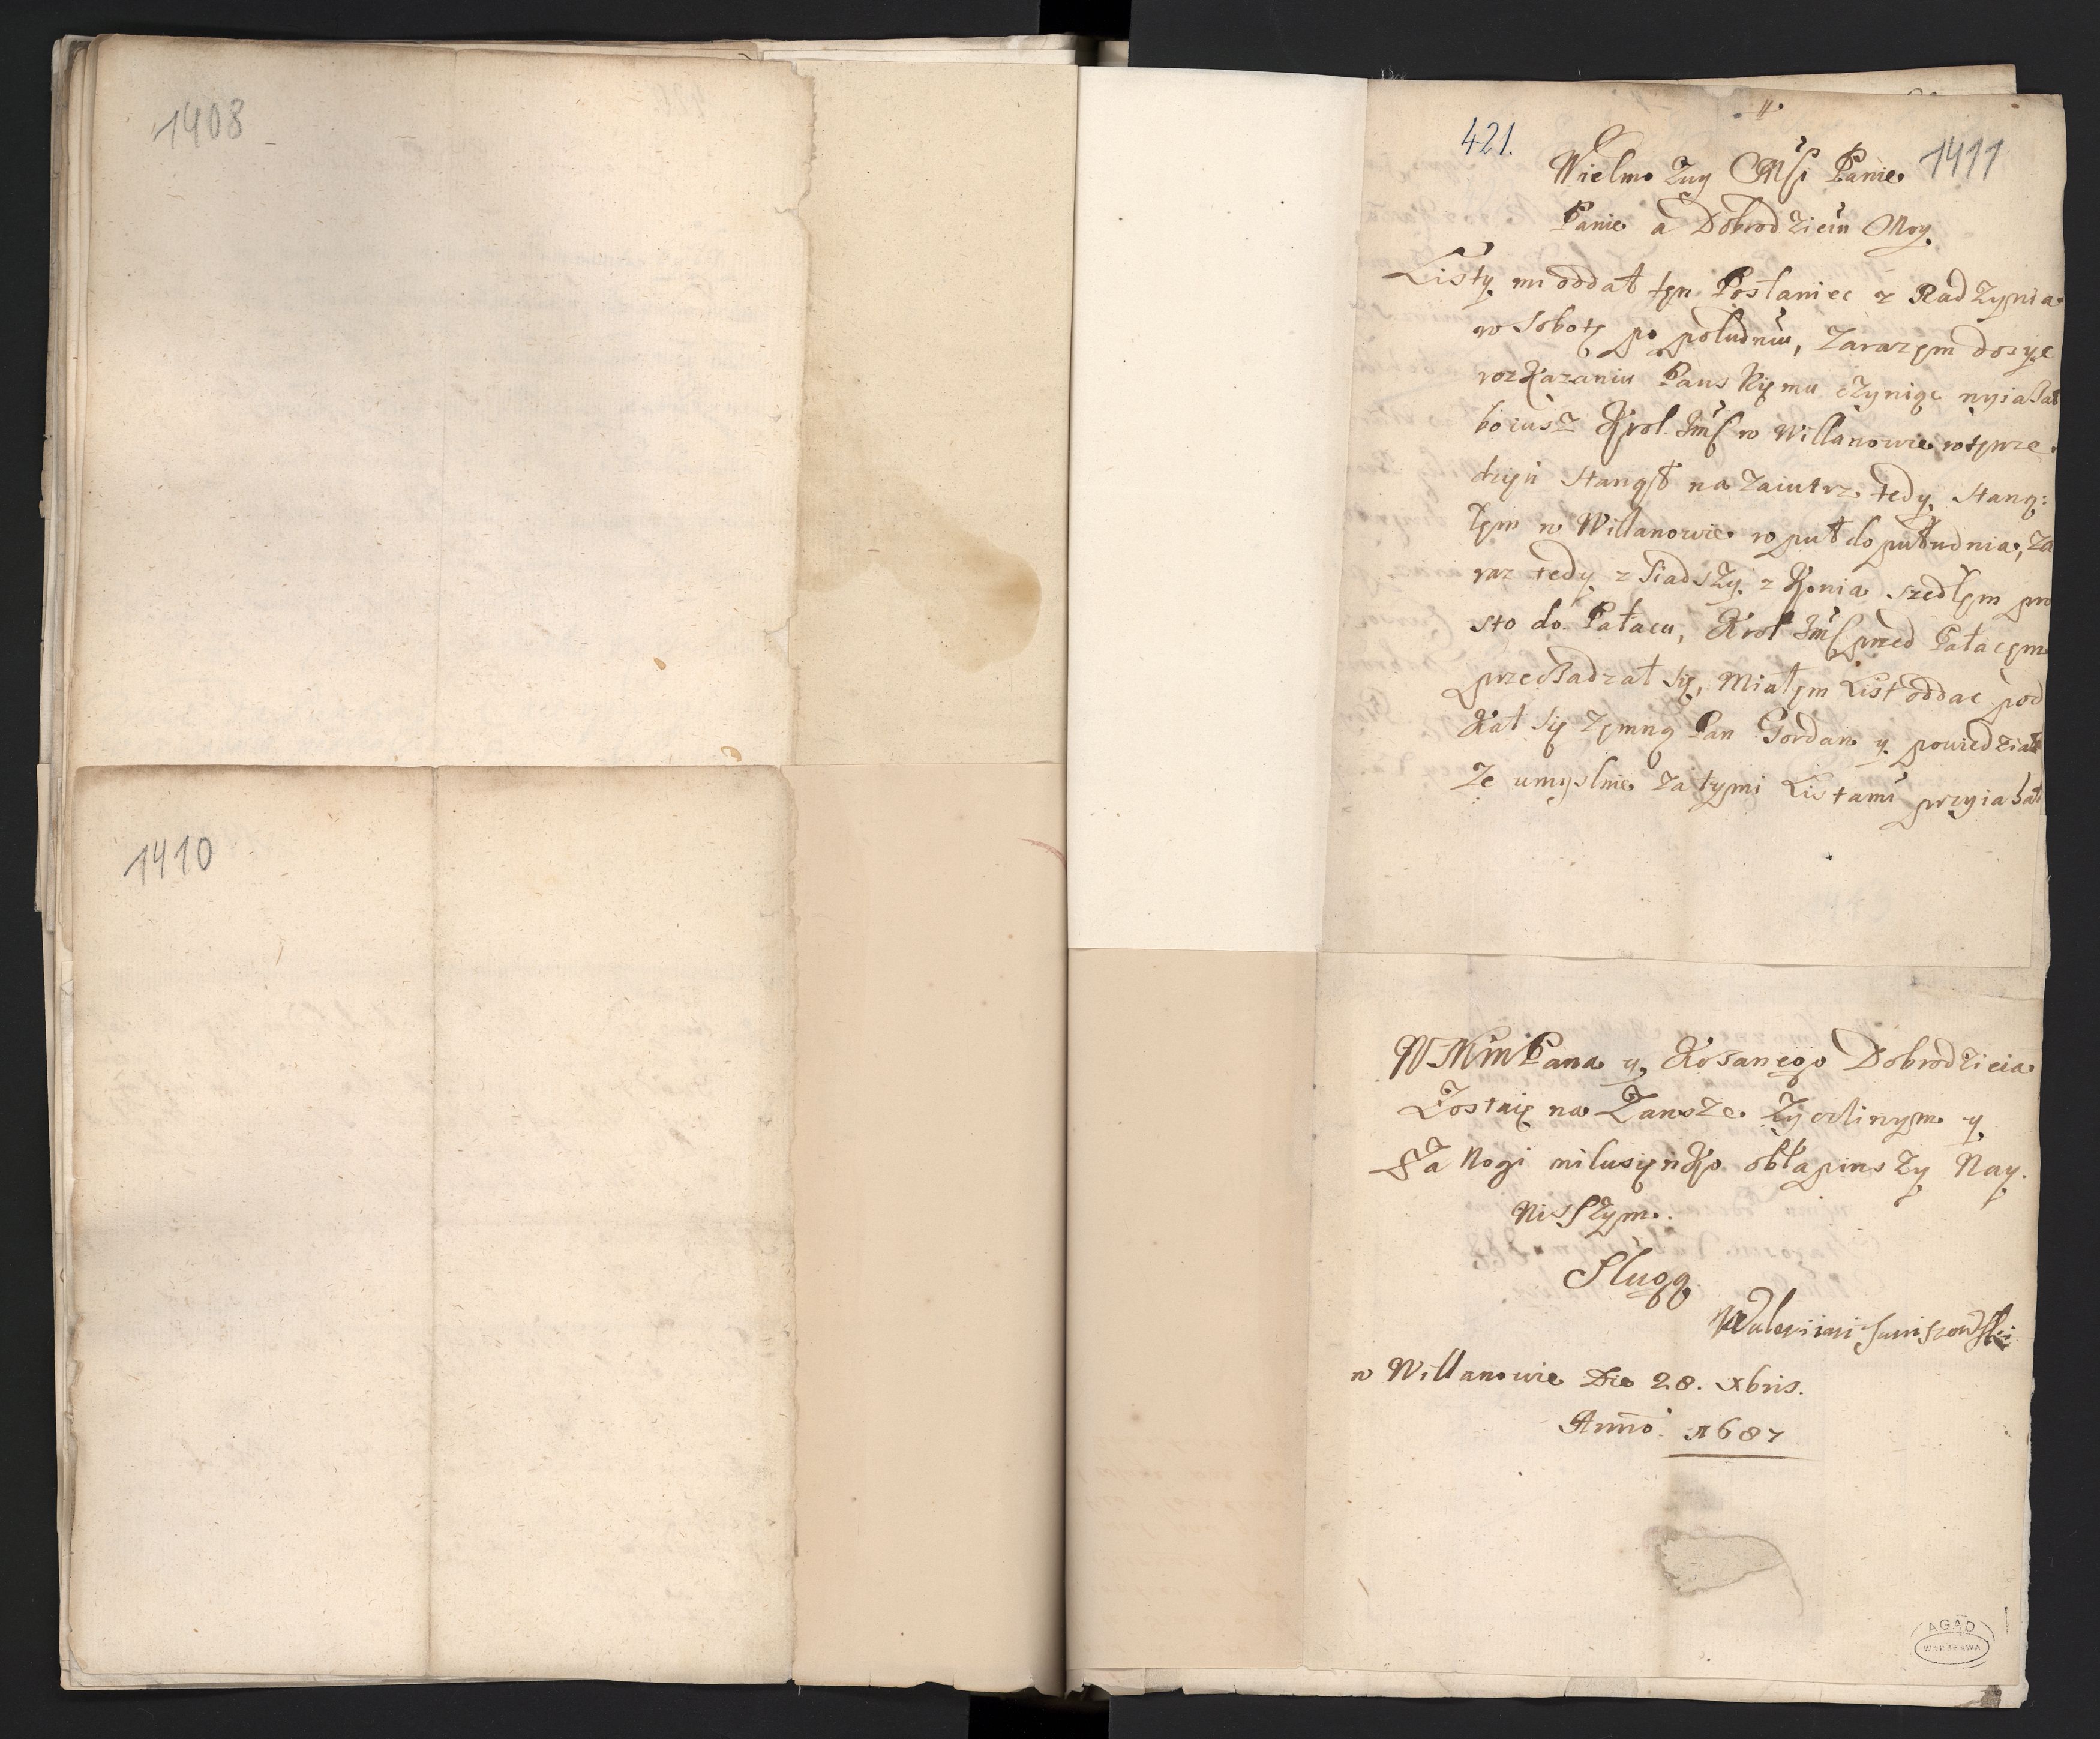 1408
1410
421.
1411
Wielmo Zny Mſci Panie
Panie a Dobrodzieiu Moy
Listy mi oddał tęn Posłaniec z Radzynia
w Sobotę po południu, Zarazęm dosyc
rozkazaniu Panskięmu czyniąc
bo iusz Krol Jmſc w Willanowie
dzięń Stanął na Zaiutrz tedy Staną:
łęm w Willanowie w puł do południa, Za
raz tedy z Siadszy z Konia szedłęm pro
sto do Pałacu, Krol Jmſc przed Pałacęm
przechadzał się, Miałęm List oddac pod
kał się Zęmną Pan Gordan y powiedział
Ze umyslnie Za tymi Listami przyiahał
WMMPana y Kohanego Dobrodzieia
Zostaię na Zawsze Zyczliwym y
Za Nogi milusięńko obłapiwszy Nay
Nisſzym
Sługą
w Willanowie Die 28. Xbris.
Anno 1687
AGAD
WARSZAWA